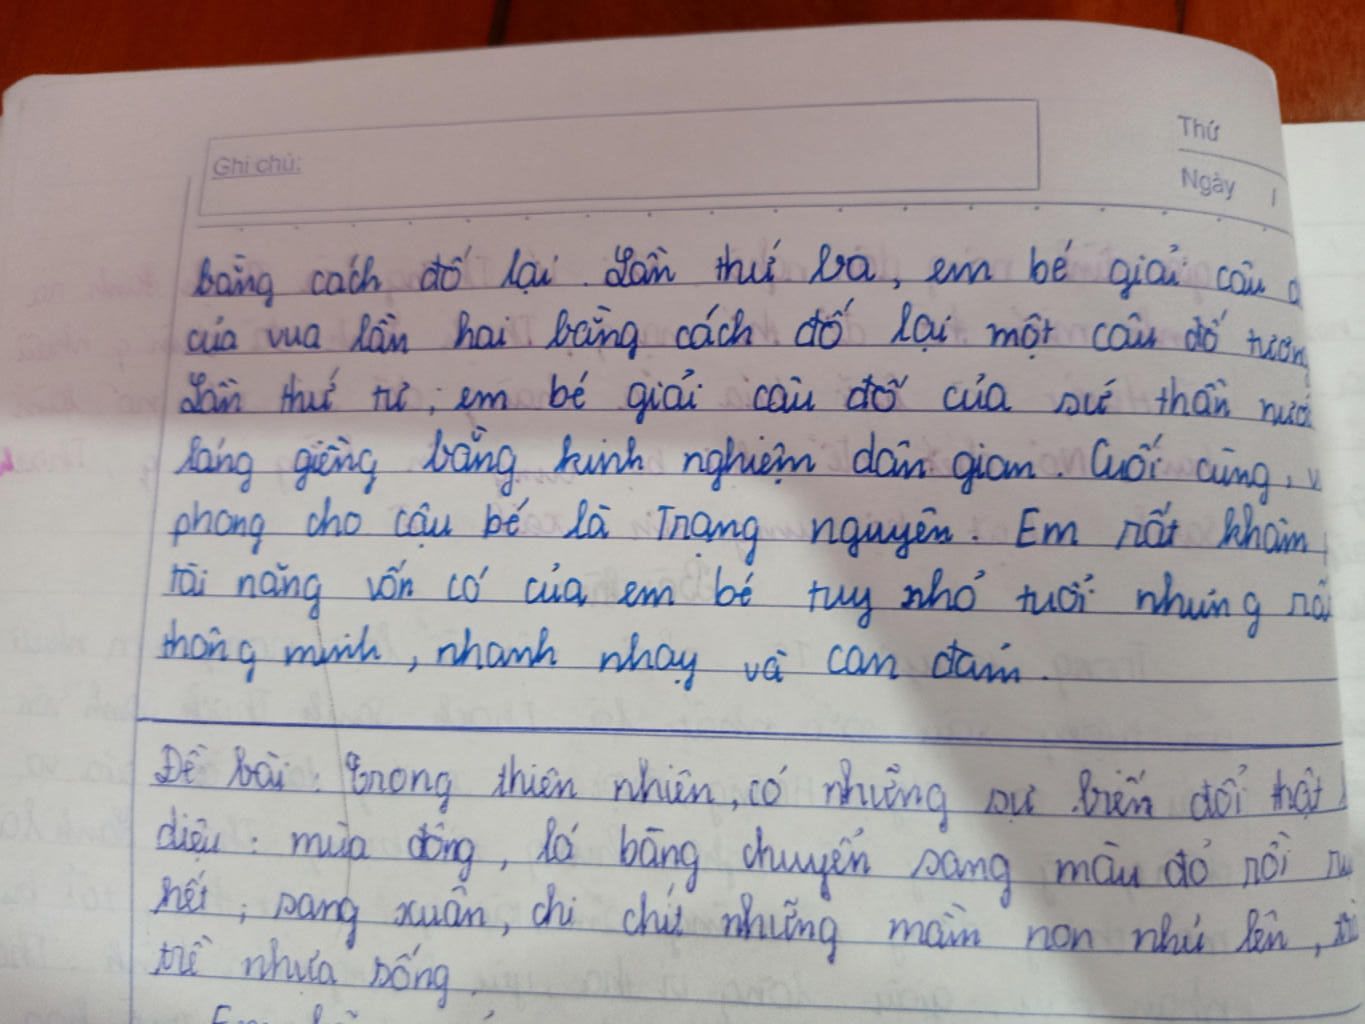 Ghi chú:
Thứ
Ngày /
bằng cách đố lại. Lần thứ ba, em bé giải câu
của vua lần hai bằng cách đố lại một câu đố tương
Lần thứ tư, em bé giải câu đố của sứ thần nước
láng giềng bằng kinh nghiệm dân gian. Cuối cùng,
phong cho cậu bé là Trạng nguyên. Em rất khâm
tài năng vốn có của em bé tuy nhỏ tuổi nhưng
thông minh, nhanh nhạy và can đảm.
Đề bài: Trong thiên nhiên, có những sự biến đổi thật
diệu: mùa đông, lá bàng chuyển sang màu đỏ rồi
hết; sang xuân, chi chít những mầm non nhú lên,
trề nhựa sống.